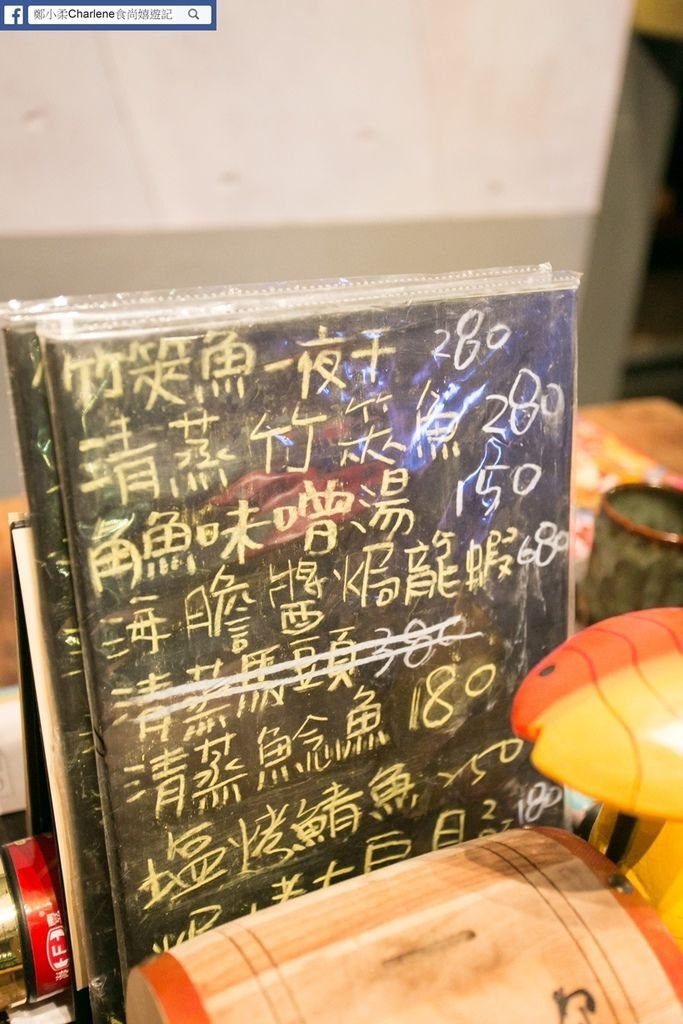 鄭小柔Charlene食尚嬉遊記
竹筴魚一夜干 280
清蒸竹筴魚 280
鱻魚味噌湯 150
海膽醬焗龍蝦 680
清蒸馬頭 380
清蒸鯰魚 180
塩烤鯖魚 250
180